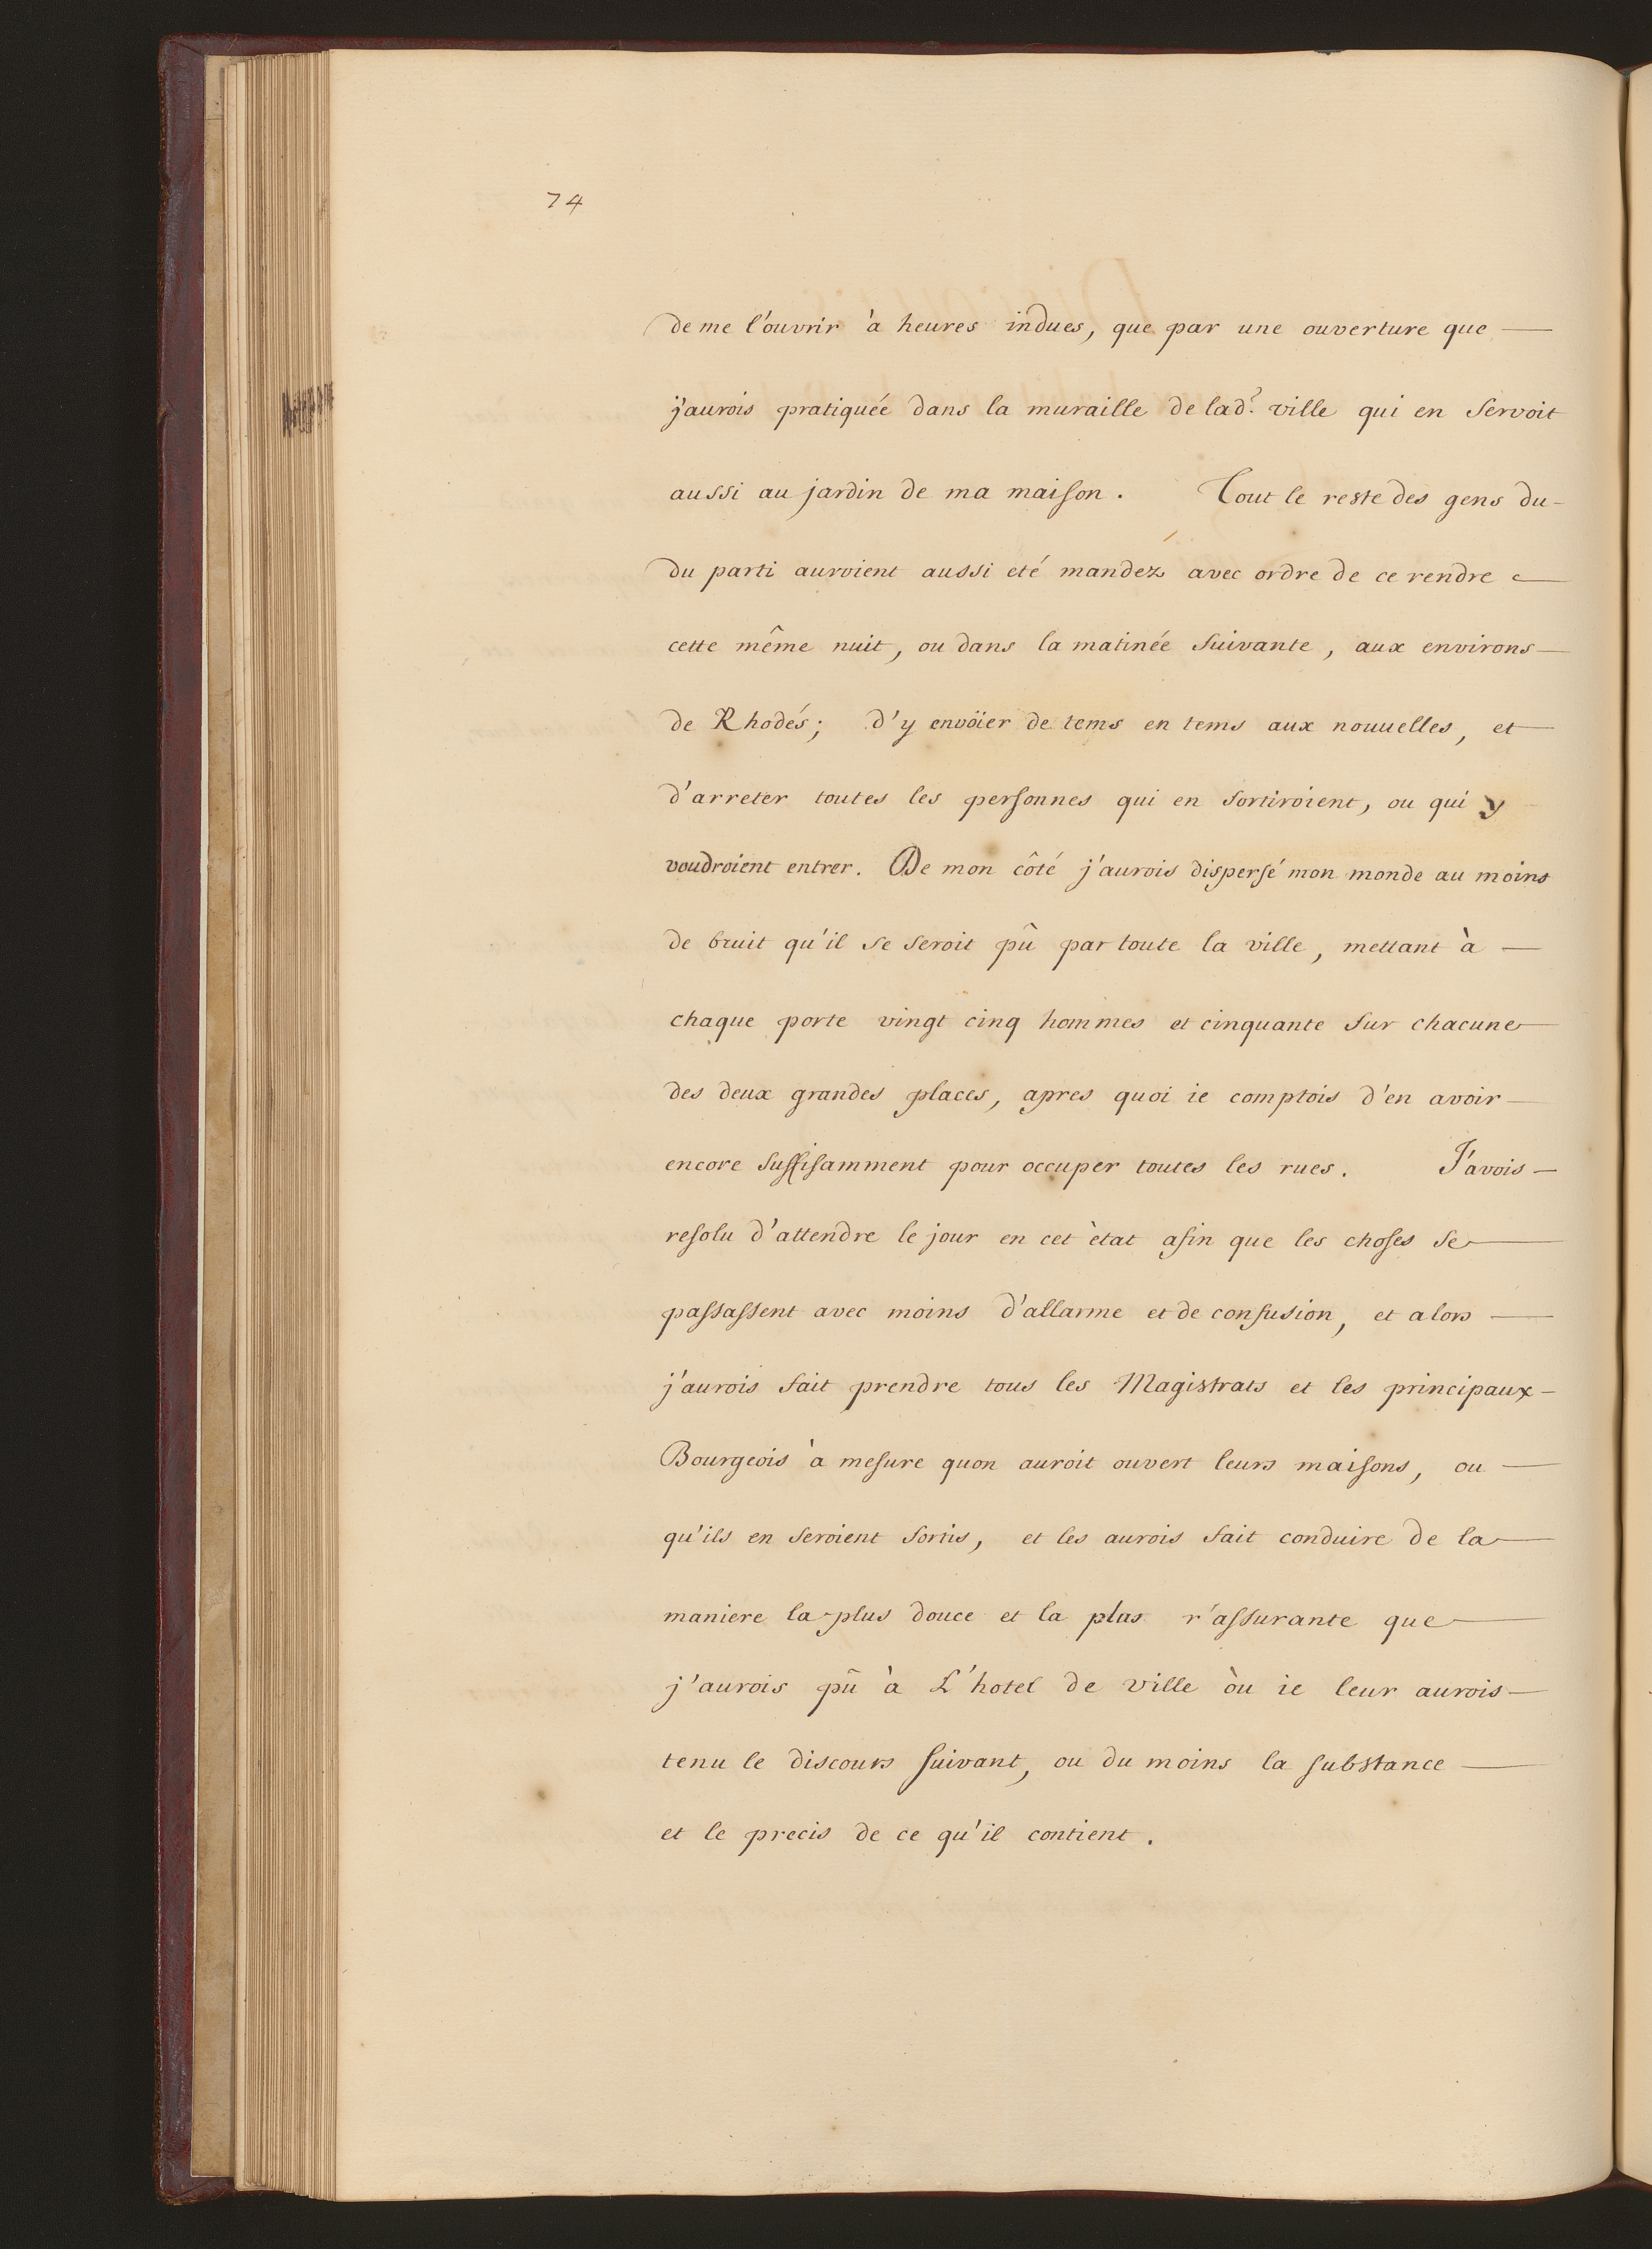 74
de me l'ouvrir à heures indues, que par une ouverture que —
j'aurois pratiquée dans la muraille de lad.e ville qui en servoit
aussi au jardin de ma maison. Tout le reste des gens du-
du parti auroient aussi eté mandez avec ordre de ce rendre —
cette même nuit, ou dans la matinée suivante, aux environs —
de Rhodés; d'y envöier de tems en tems aux nouuelles, et —
d'arreter toutes les personnes qui en sortiroient, ou qui y
voudroient entrer. De mon côté j'aurois dispersé mon monde au moins
de bruit qu'il se seroit pû par toute la ville, mettant à —
chaque porte vingt cinq hommes et cinquante sur chacune —
des deux grandes places, apres quoi ie comptois d'en avoir —
encore suffisamment pour occuper toutes les rues. J'avois —
resolu d'attendre le jour en cet ètat afin que les choses se —
passassent avec moins d'allarme et de confusion, et alors —
j'aurois fait prendre tous les Magistrats et les principaux —
Bourgeois à mesure quon auroit ouvert leurs maisons, ou —
qu'ils en seroient sortis, et les aurois fait conduire de la —
maniere la plus douce et la plus r'assurante que —
j'aurois pû à L'hotel de ville òu ie leur aurois —
tenu le discours suivant, ou du moins la substance —
et le precis de ce qu'il contient.